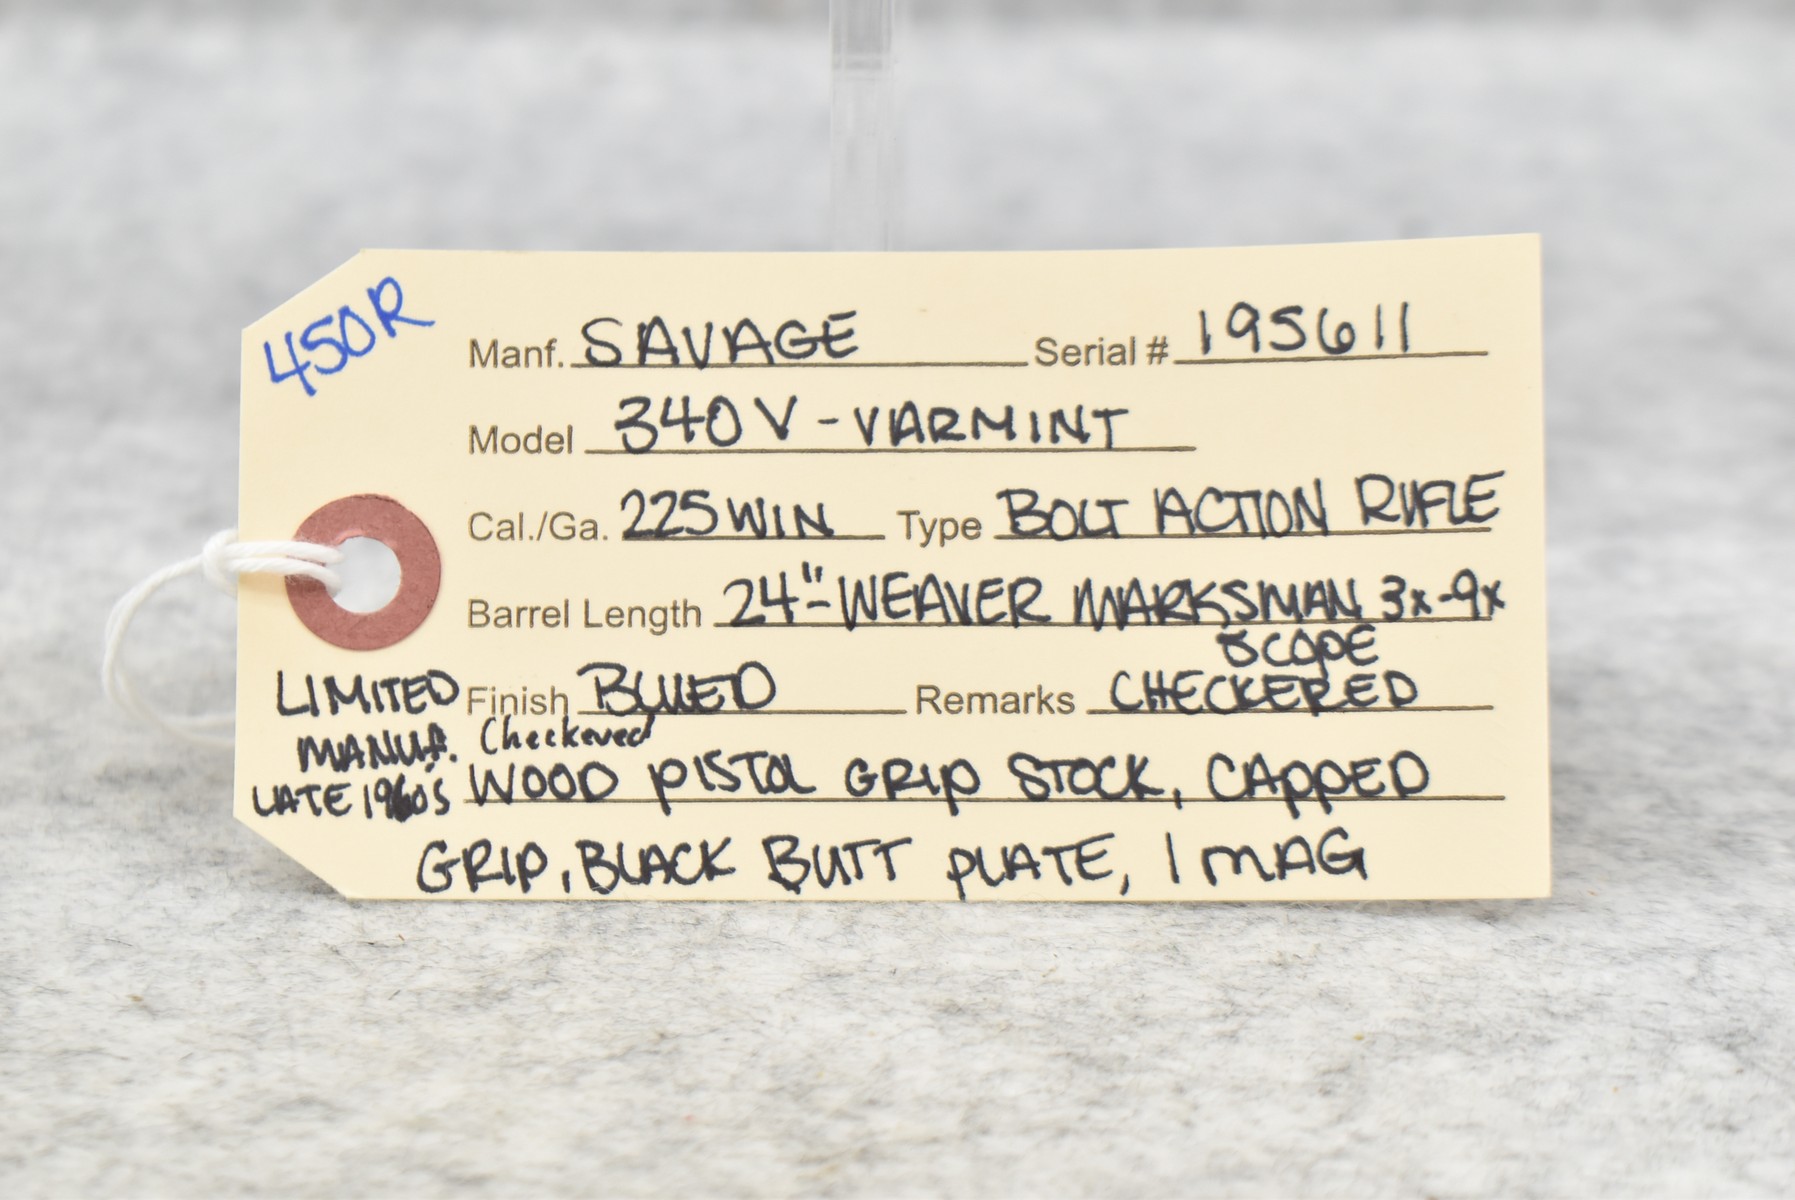 450R
Manf. SAVAGE Serial # 195611
Model 340V - VARMINT
Cal./Ga. 225 WIN Type BOLT ACTION RIFLE
Barrel Length 24" - WEAVER MARKSMAN 3x-9x
SCOPE
LIMITED Finish BLUED Remarks CHECKERED
MANUF. Checkered
LATE 1960's WOOD PISTOL GRIP STOCK, CAPPED
GRIP, BLACK BUTT PLATE, 1 MAG